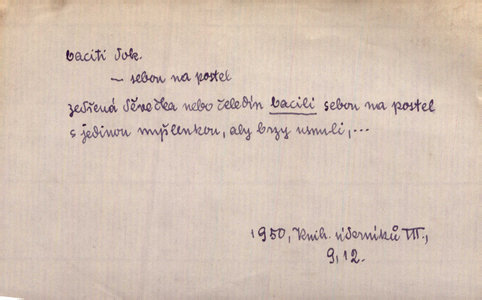 baciti dok.
— sebou na postel
zedřená děvečka nebo čeledín bacili sebou na postel
s jedinou myšlenkou, aby brzy usnuli,...
1950, Knih. úderníků III.,
9, 12.